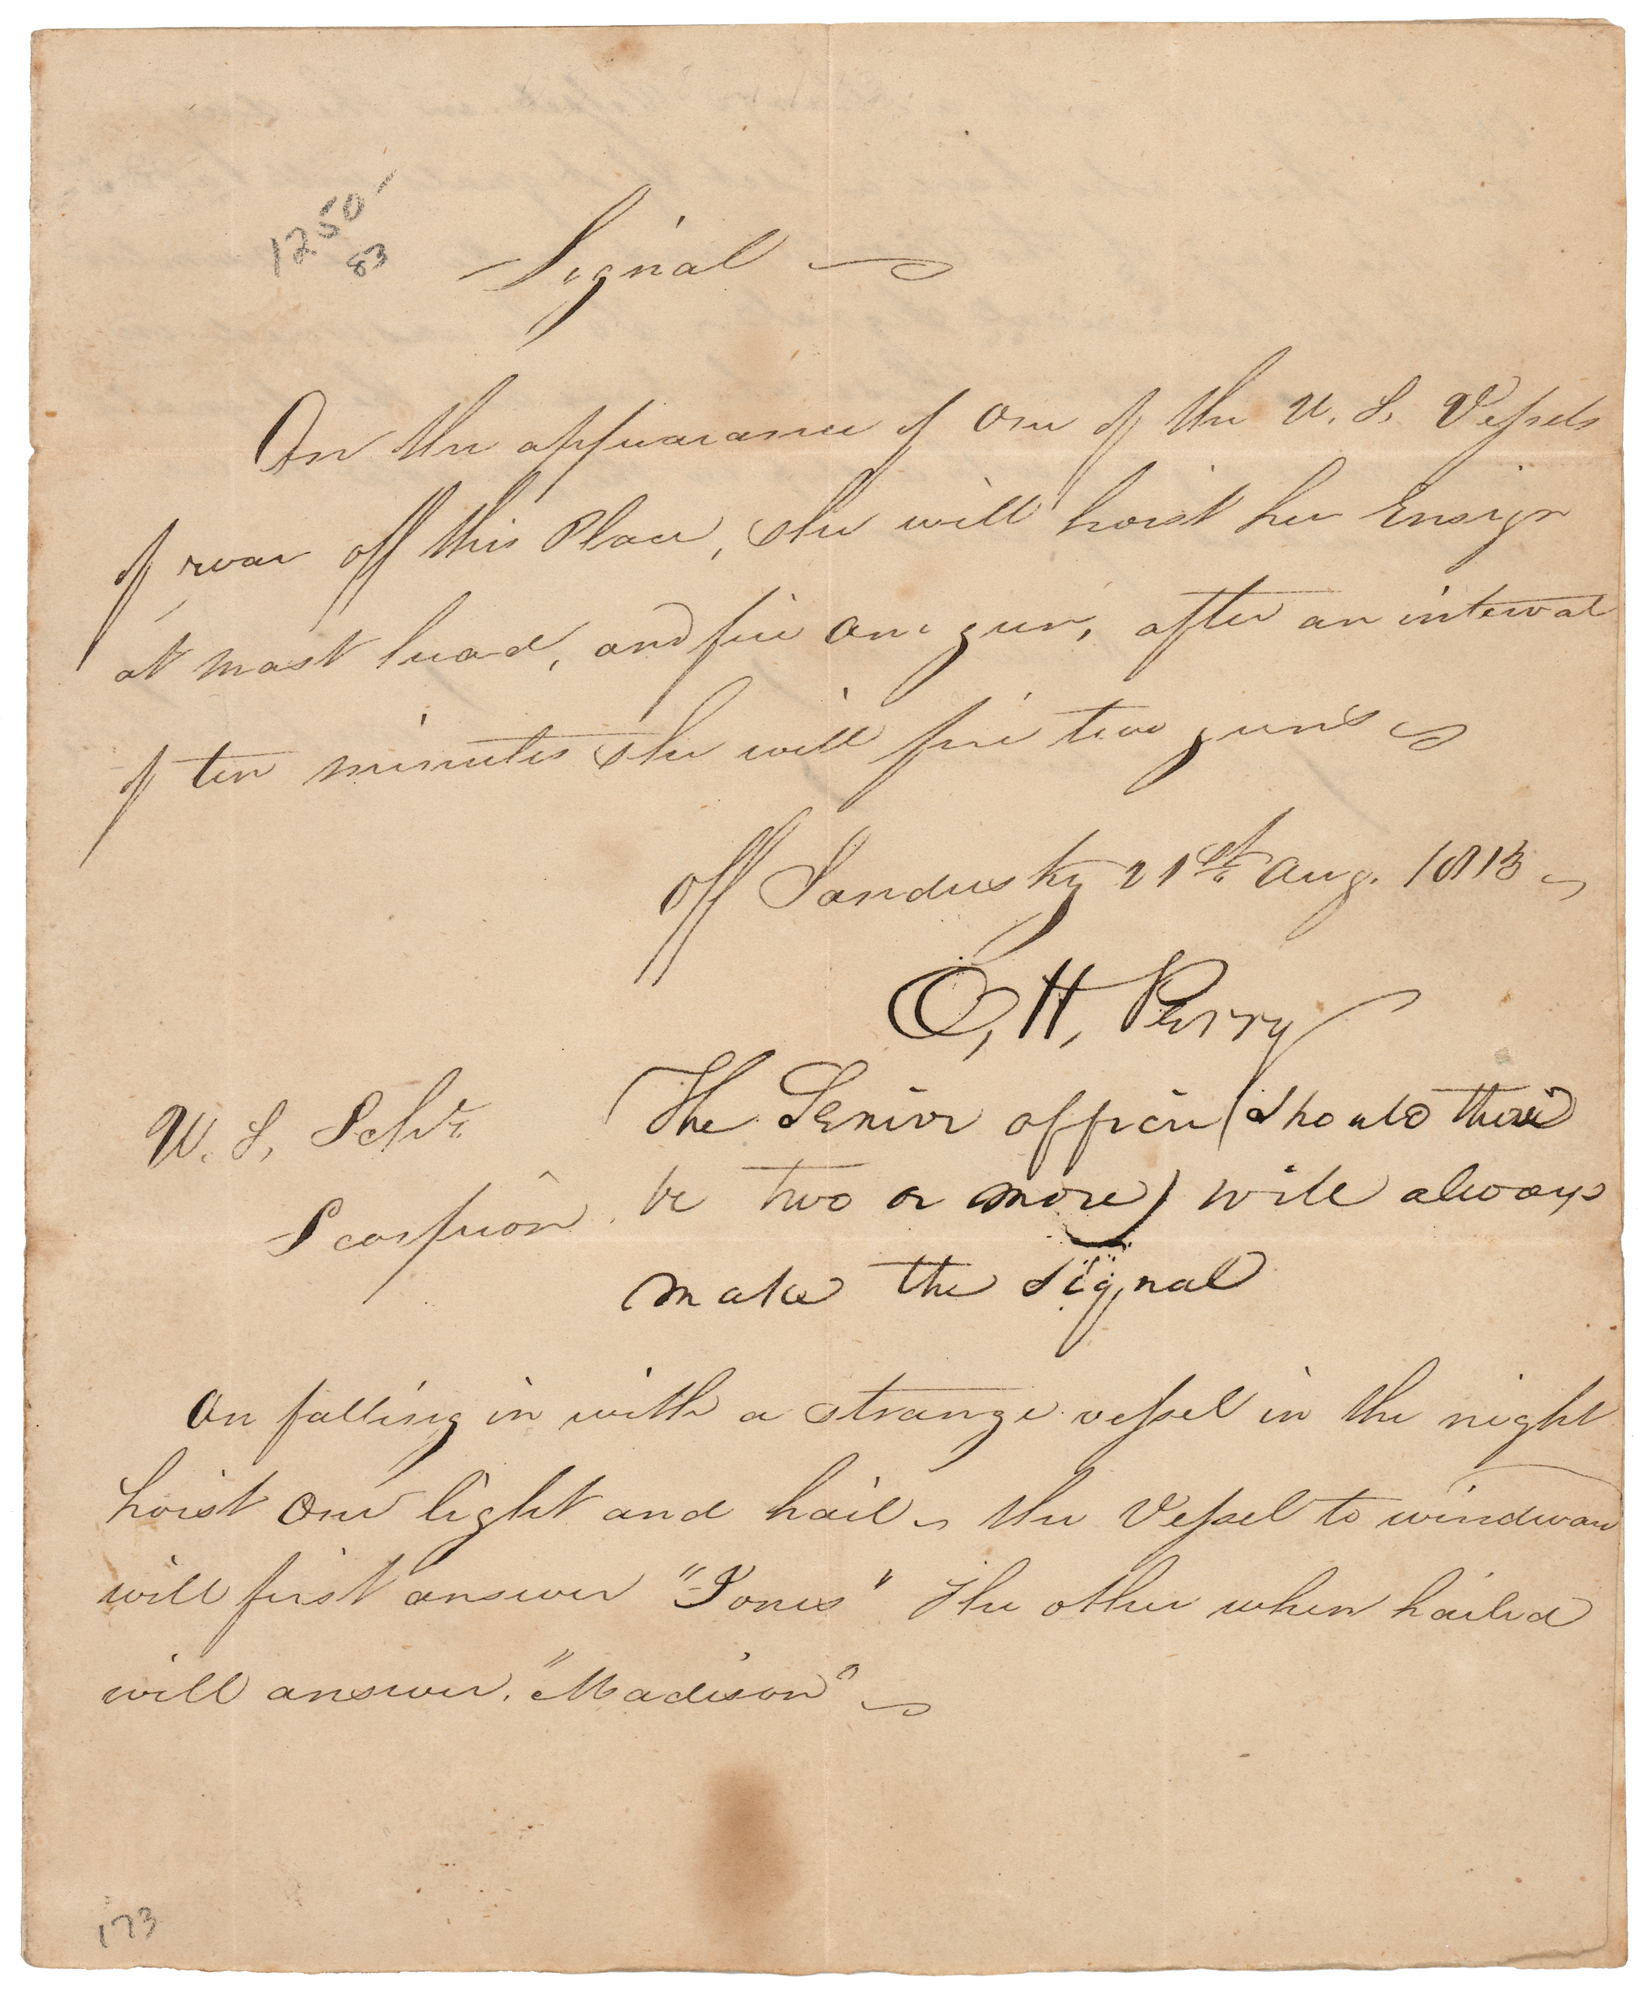 1250-
83
Signal
On the appearance of one of the U. S. Vessels
of war off this Place, she will hoist her Ensign
at mast head, and fire one gun, after an interval
of ten minutes she will fire two guns
off Sandusky 21st. Aug. 1813
O, H, Perry
U. S, Schr.
Scorpion
The Senior officer (should there
be two or more) will always
make the signal
On falling in with a strange vessel in the night
hoist one light and hail the Vessel to windward
will first answer "Jones" The other when hailed
will answer. "Madison"
173